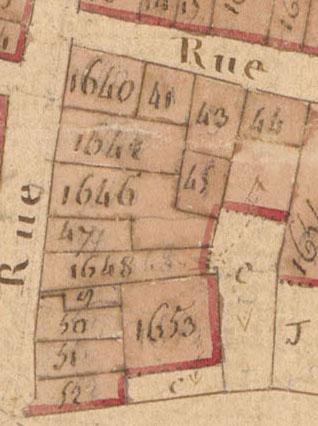 Rue
1640
41
43
44
1642
45
1646
47
1648
Rue
C
J
50
1653
51
52
C